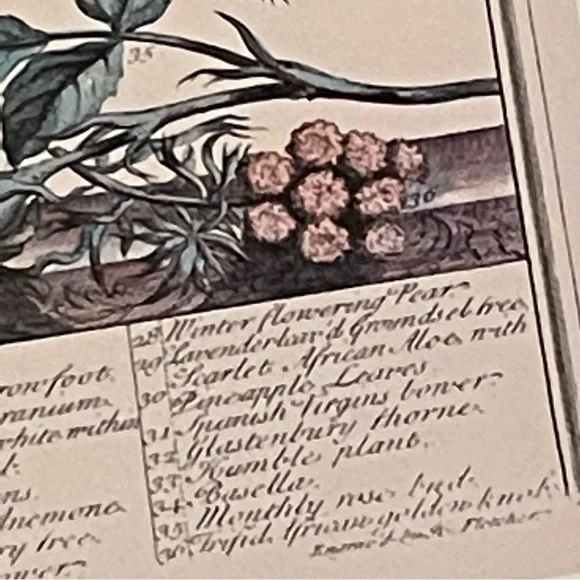 35
36
rowfoot.
ranium.
white within
ns.
Anemone
ry tree.
wer.
28 Winter flowering Pear
29 Lavenderleav'd Groundsel tree
30 Scarlet African Aloe with
Pineapple Leaves
31 Spanish Virgins bower
32 Glastenbury thorne.
33 Humble plant.
34 Basella.
35 Monthly rose bud.
36 Trifid golden knob.
Fletcher